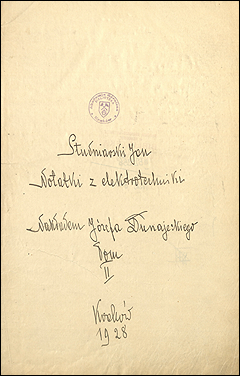 Studniarski Jan
Notatki z elektrotechniki
Nakładem Józefa Dunajeskiego
Tom
II
Kraków
1928